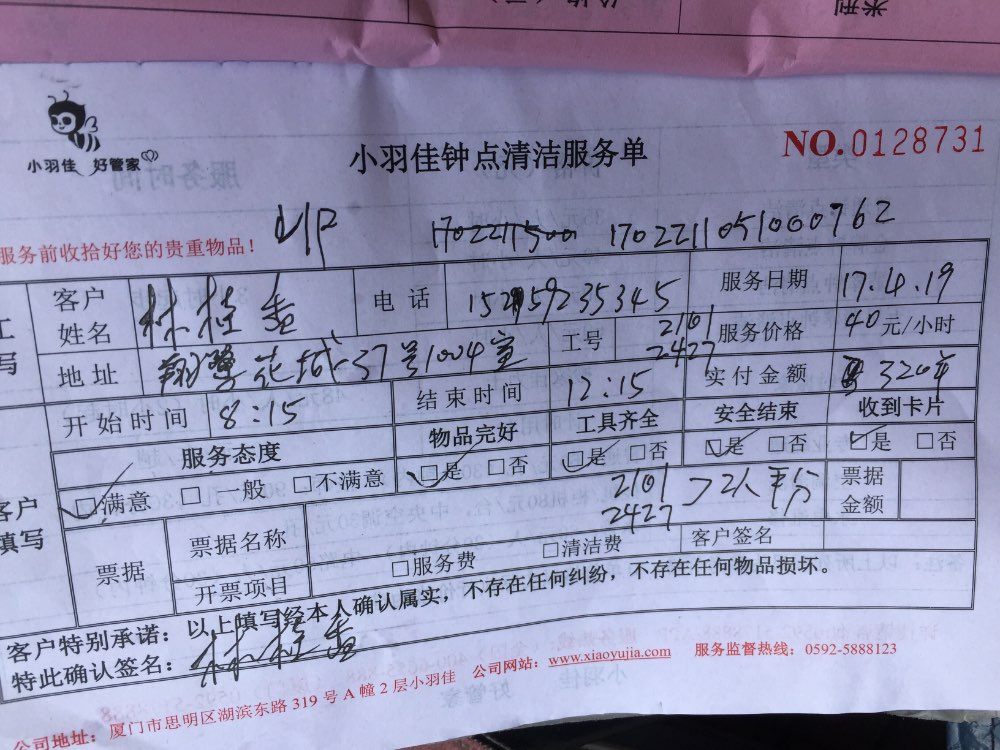 价格（元）
类型
小羽佳 好管家
小羽佳钟点清洁服务单
NO.0128731
服务前收拾好您的贵重物品！
VIP
1702211500 1702211051000762
客户姓名 林桂 电话 服务日期 17.4.19
地址 翔鹭花城 37号1004室 工号 2101 2427 服务价格 40元/小时
实付金额 320元
开始时间 8:15 结束时间 12:15
服务态度 物品完好 工具齐全 安全结束 收到卡片
☑满意 □一般 □不满意 ☑是 □否 ☑是 □否 ☑是 □否 ☑是 □否
客户填写
2101 2427 2人平分
票据金额
票据 票据名称
开票项目 □服务费 □清洁费 客户签名
客户特别承诺：以上填写经本人确认属实，不存在任何纠纷，不存在任何物品损坏。
特此确认签名：林桂
公司地址：厦门市思明区湖滨东路 319 号 A 幢 2 层小羽佳 公司网站：www.xiaoyujia.com 服务监督热线：0592-5888123